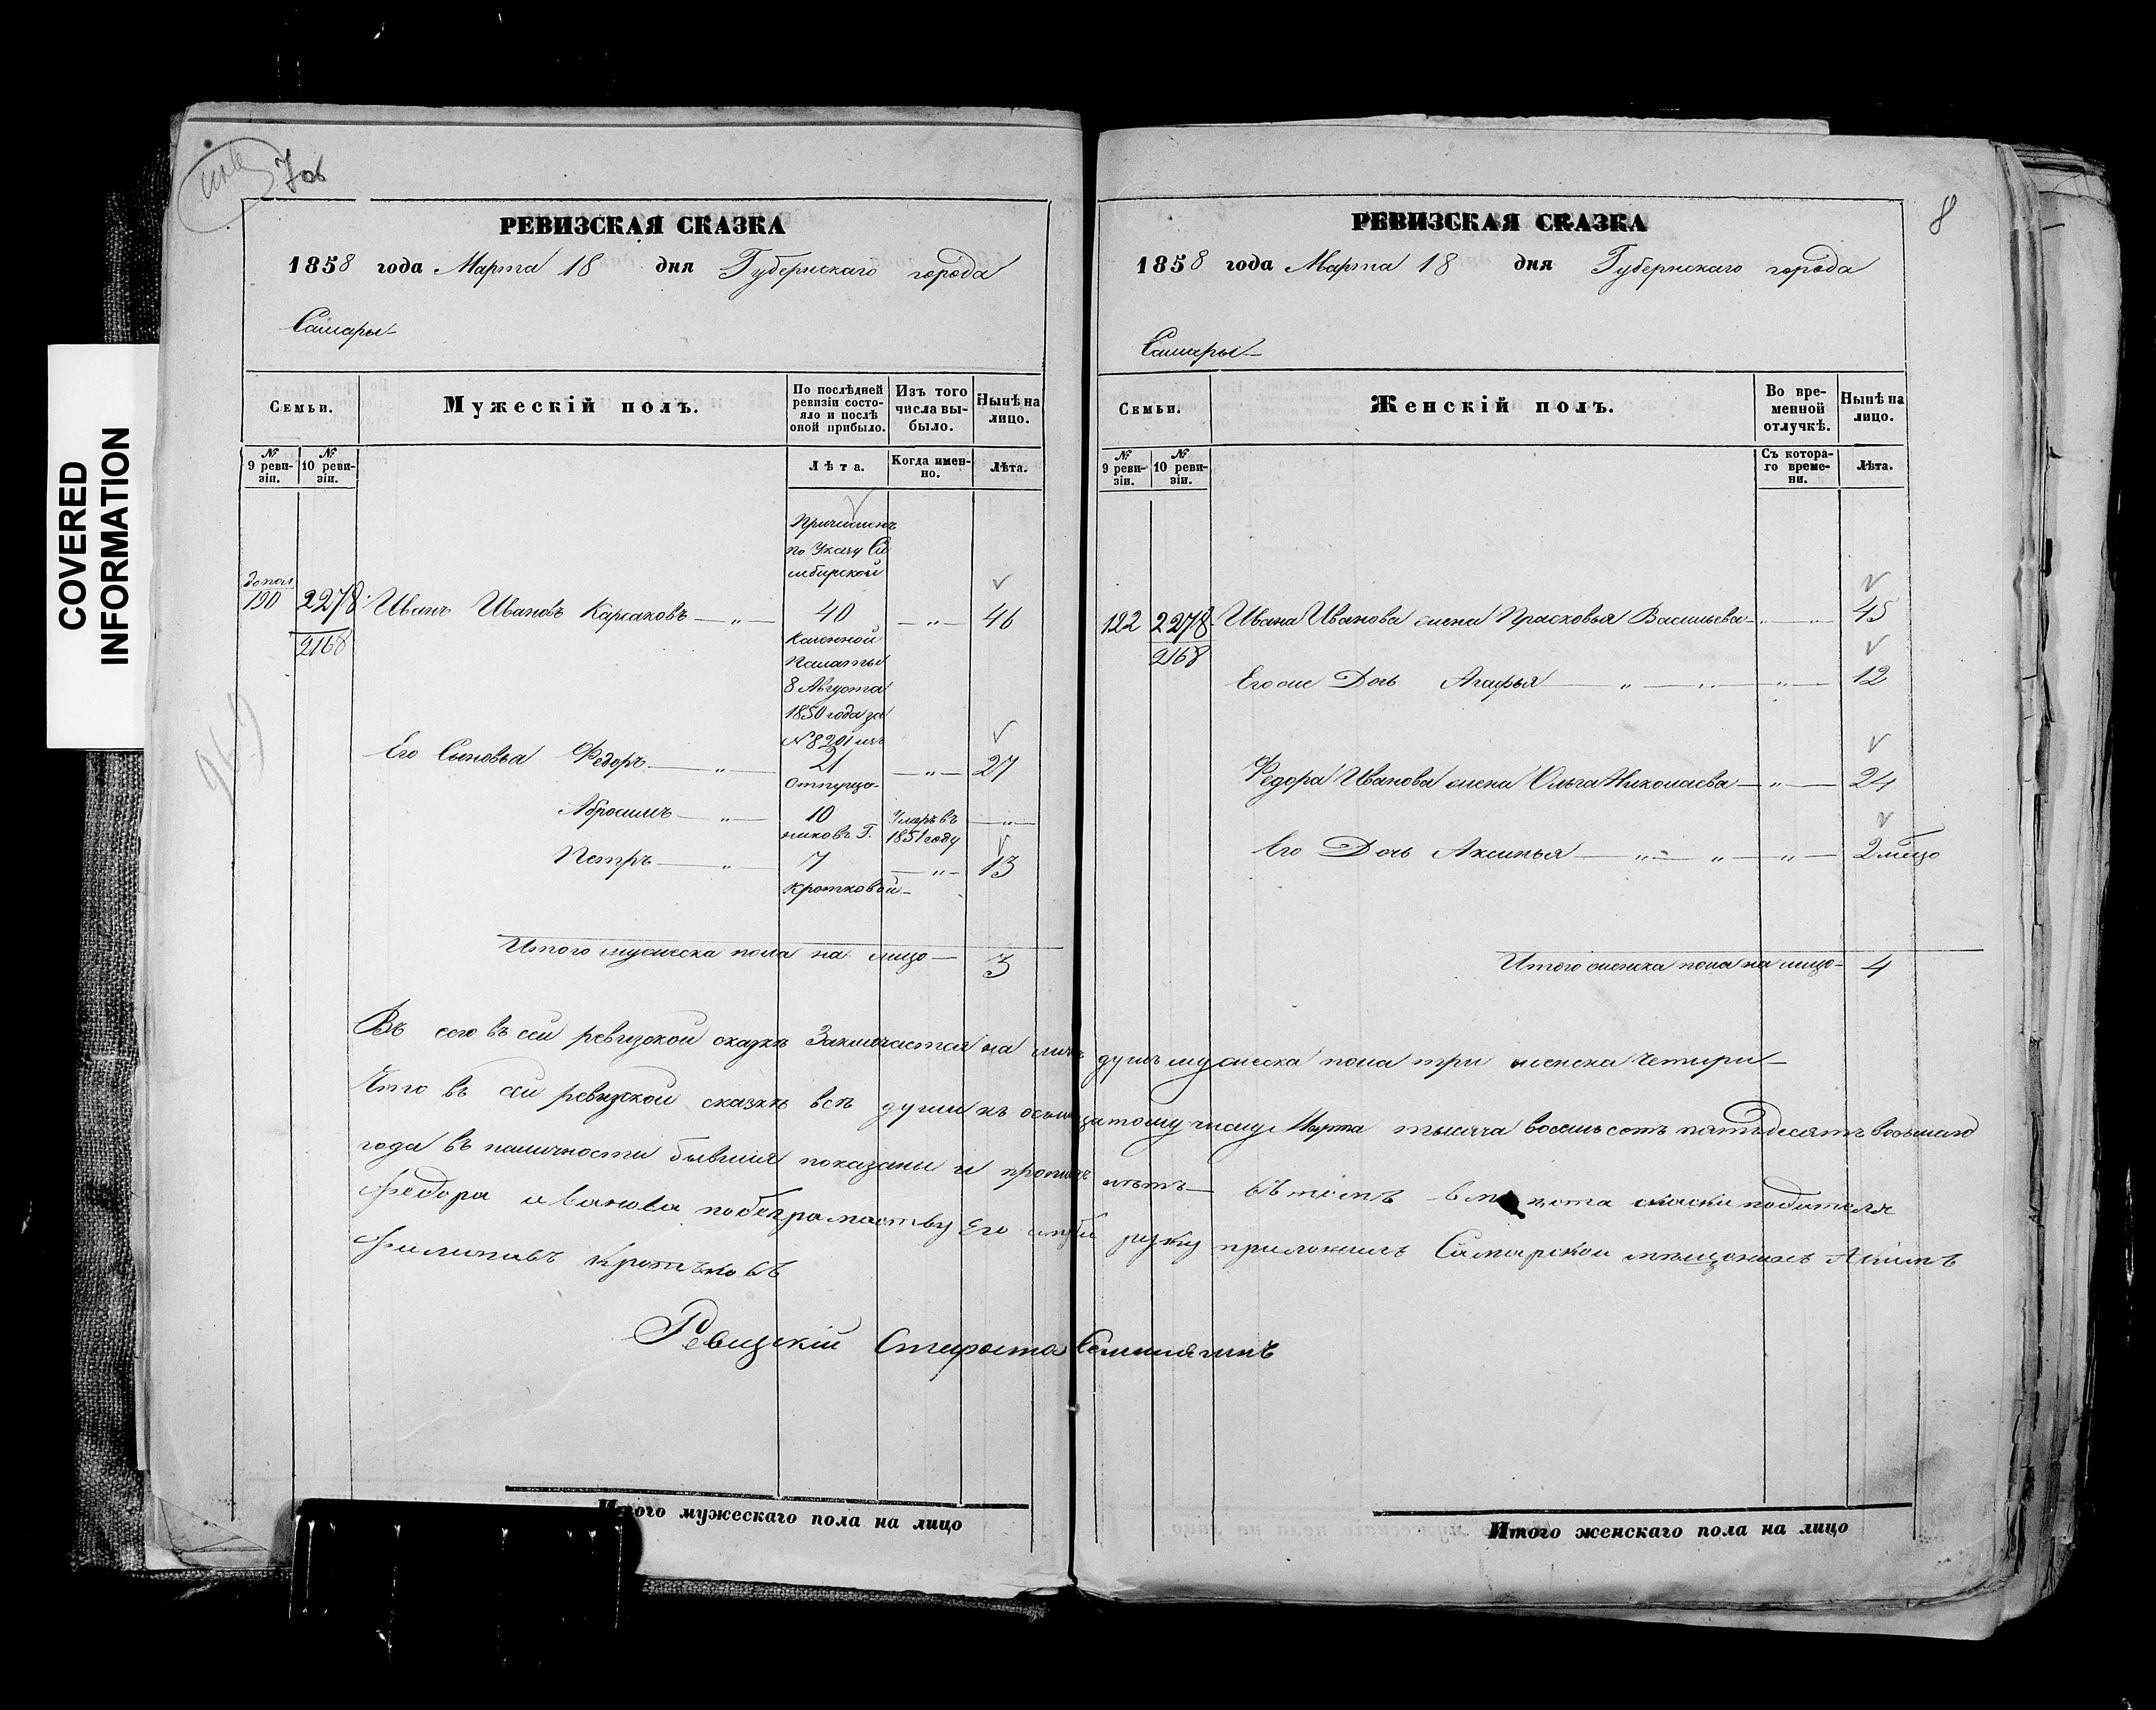 COVERED
INFORMATION
7 об
РЕВИЗСКАЯ СКАЗКА
1858 года Марта 18 дня Губернскаго города
Самары
Семьи.
Мужескій полъ.
По послѣдней ревизіи состо-
яло и послѣ
оной прибыло.
Изъ того
числа вы-
было.
Нынѣ на
лицо.
№
9 реви-
зіи.
№
10 реви-
зіи.
Лѣта.
Когда имен-
но.
Лѣта.
Причисленъ
по Указу Си
мбирской
допол
190 2278 Иванъ Ивановъ Карсаковъ — „ — 40 — „ — 46
2168
Казенной
Палаты
8 Августа
1850 года за
№ 8201 изъ
Его Сыновья Федоръ — „ — 21 — „ — 27
отпущен-
Абросимъ — „ — 10 Умеръ въ — „ —
никовъ Г. 1851 году
Петръ — „ — 7 — „ — 13
Кротковой
Итого мужеска пола на лицо — 3
8
РЕВИЗСКАЯ СКАЗКА
1858 года Марта 18 дня Губернскаго города
Самары
Семьи.
Женскій полъ.
Во вре-
менной
отлучкѣ.
Нынѣ на
лицо.
№
9 реви-
зіи.
№
10 реви-
зіи.
Съ котора-
го време-
ни.
Лѣта.
122 2278 Ивана Иванова жена Прасковья Васильева — „ — 45
2168
Его же Дочь Агафья — „ — „ — „ — 12
Федора Иванова жена Ольга Николаева — „ — 24
Его Дочь Аксинья — „ — „ — „ — 2
Итого женска пола на лицо — 4
Въ сего въ сей ревизской сказкѣ Заключается на лицо душъ мужеска пола три женска Четыри
Что въ сей ревизской сказкѣ всѣ души къ осьмнцатому числу Марта тысяча восемьсотъ пятьдесятъ восьмаго
года въ наличности бывшия показаны и лѣтъ — вътомъ вмѣста скаски подателя
федора иванова побезграмоству Его руку приложилъ Самарскои мещенинъ Акимъ
филиповъ Кротковъ
Ревизкій Староста
Итого мужескаго пола на лицо
Итого женскаго пола на лицо